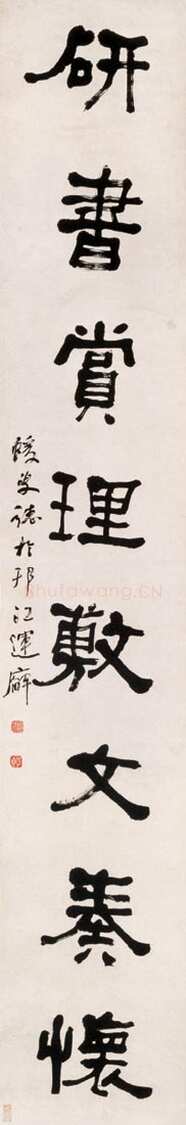 研書賞理敷文奏懷
蝯叟誌於邗江運廨
Shufawang.CN